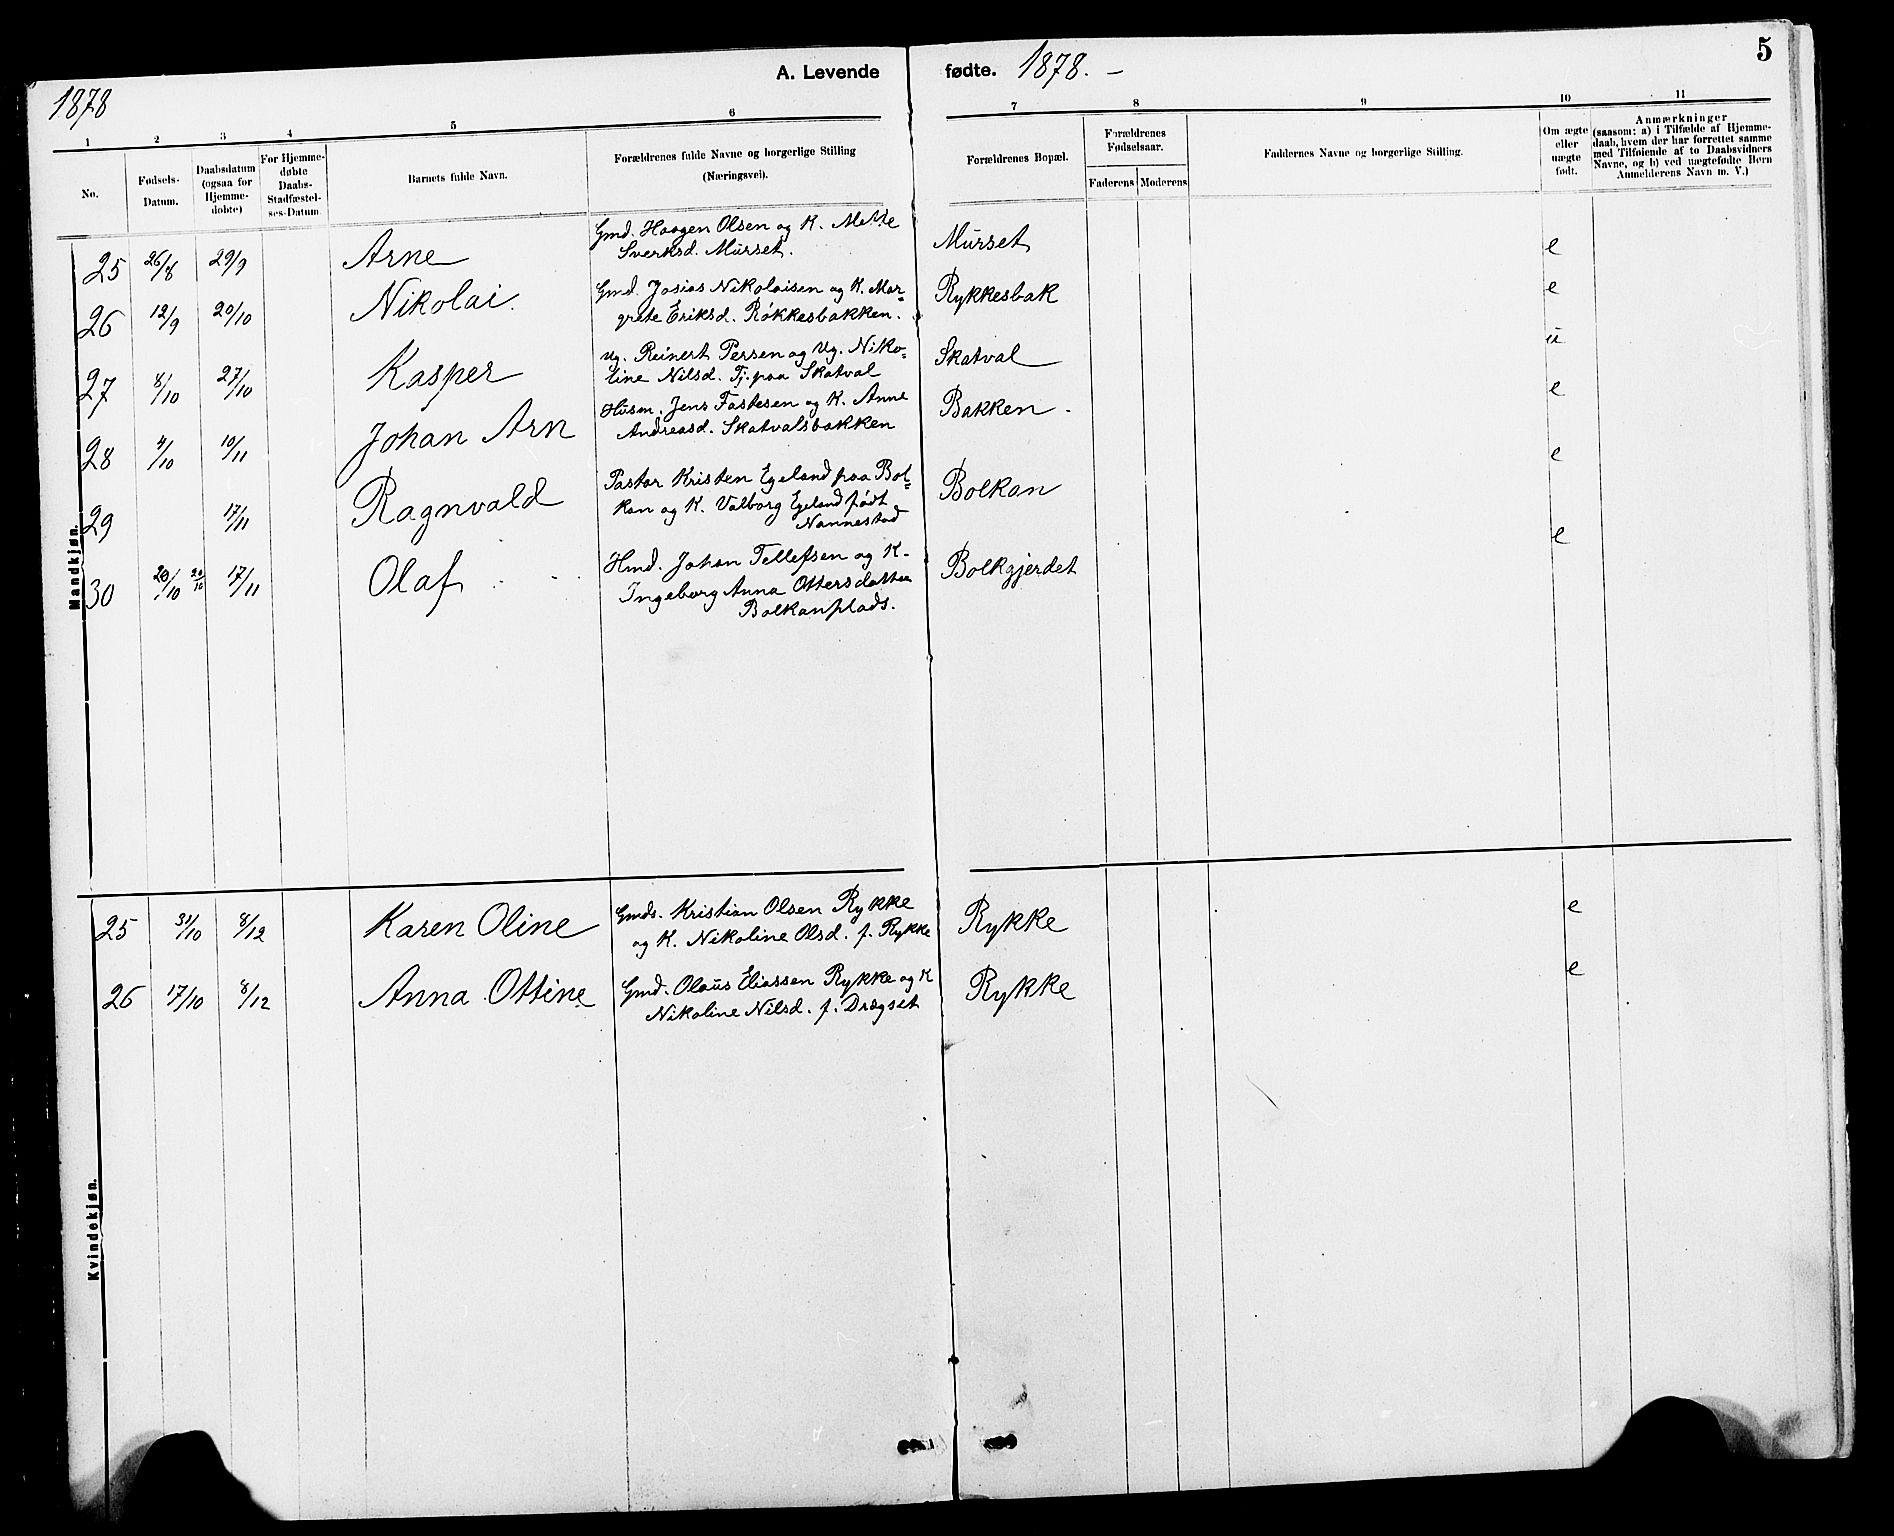 5
A. Levende fødte. 1878. –
1878
1 2 3 4 5 6 7 8 9 10 11
No.
Fødsels-
Datum.
Daabsdatum
(ogsaa for
Hjemme-
døbte)
For Hjemme-
døbte
Daabs-
Stadfæstel-
ses-Datum
Barnets fulde Navn.
Forældrenes fulde Navne og borgerlige Stilling
(Næringsvei).
Forældrenes Bopæl.
Forældrenes
Fødselsaar.
Faderens Moderens
Faddernes Navne og borgerlige Stilling.
Om ægte
eller
uægte
født.
Anmærkninger
(saasom: a) i Tilfælde af Hjemme-
daab, hvem der har forrettet samme
med Tilføiende af to Daabsvidners
Navne, og b) ved uægtefødte Børn
Anmelderens Navn m. V.)
Mandkjøn.
25 26/8 29/9 Arne Gmd. Haagen Olsen og K. Mette Murset e
Sverksd. Murset.
26 12/9 20/10 Nikolai. Gmd. Josias Nikolaisen og K. Mar- Rykkesbak e
grete Eriksd. Røkkesbakken.
27 8/10 27/10 Kasper Ug. Reinert Persen og Ug. Niko- Skatval u
line Nilsd. Tj. paa Skatval
28 4/10 10/11 Johan Arn Husm. Jens Fastesen og K. Anne Bakken. e
Andreasd. Skatvalsbakken
29 17/11 Ragnvald Pastor Kristen Egeland paa Bol- Bolkan e
kan og K. Valborg Egeland født
Nannestad
30 20/10 20/10 17/11 Olaf Hmd. Johan Tellefsen og K. Bolkgjerdet e
Ingeborg Anna Ottersdatter
Bolkanplads.
Kvindekjøn.
25 31/10 8/12 Karen Oline Gmds. Kristian Olsen Rykke Rykke e
og K. Nikoline Olsd. f. Rykke
26 17/10 8/12 Anna Ottine Gmd. Olaus Eliassen Rykke og K Rykke e
Nikoline Nilsd. f. Drægset